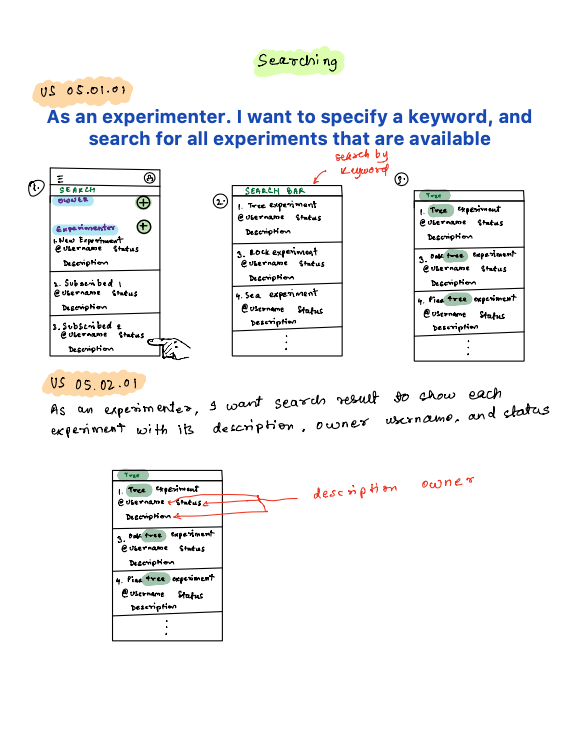 Searching
US 05.01.01
As an experimenter. I want to specify a keyword, and
search for all experiments that are available
search by
keyword
1.
SEARCH
OWNER
Experimenter
1. New Experiment
@ Username Status
Description
2. Subscribed 1
@ Username Status
Description
3. Subscribed 2
@ Username Status
Description
2.
SEARCH BAR
1. Tree experiment
@ Username Status
Description
3. Rock experiment
@ Username Status
Description
4. Sea experiment
@ Username Status
Description
3.
Tree
1. Tree experiment
@ Username Status
Description
3. Oak tree experiment
@ Username Status
Description
4. Pine tree experiment
@ Username Status
Description
US 05.02.01
As an experimenter, I want search result to show each
experiment with its description, owner username, and status
Tree
1. Tree experiment
@ Username Status
Description
3. Oak tree experiment
@ Username Status
Description
4. Pine tree experiment
@ Username Status
Description
description owner